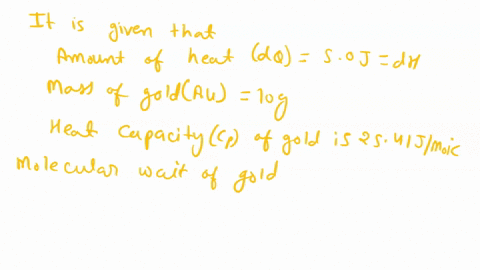 It is given that
Amount of heat (dQ) = 5.0J = dH
Mass of gold(Au) = 10g
Heat capacity(Cp) of gold is 25.41J/molc
Molecular wait of gold